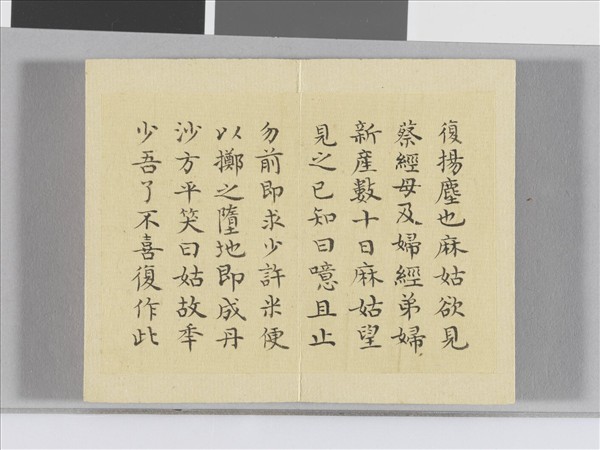 復揚塵也麻姑欲見
蔡經母及婦經弟婦
新產數十日麻姑望
見之已知曰噫且止
勿前即求少許米便
以擲之墮地即成丹
沙方平笑曰姑故年
少吾了不喜復作此